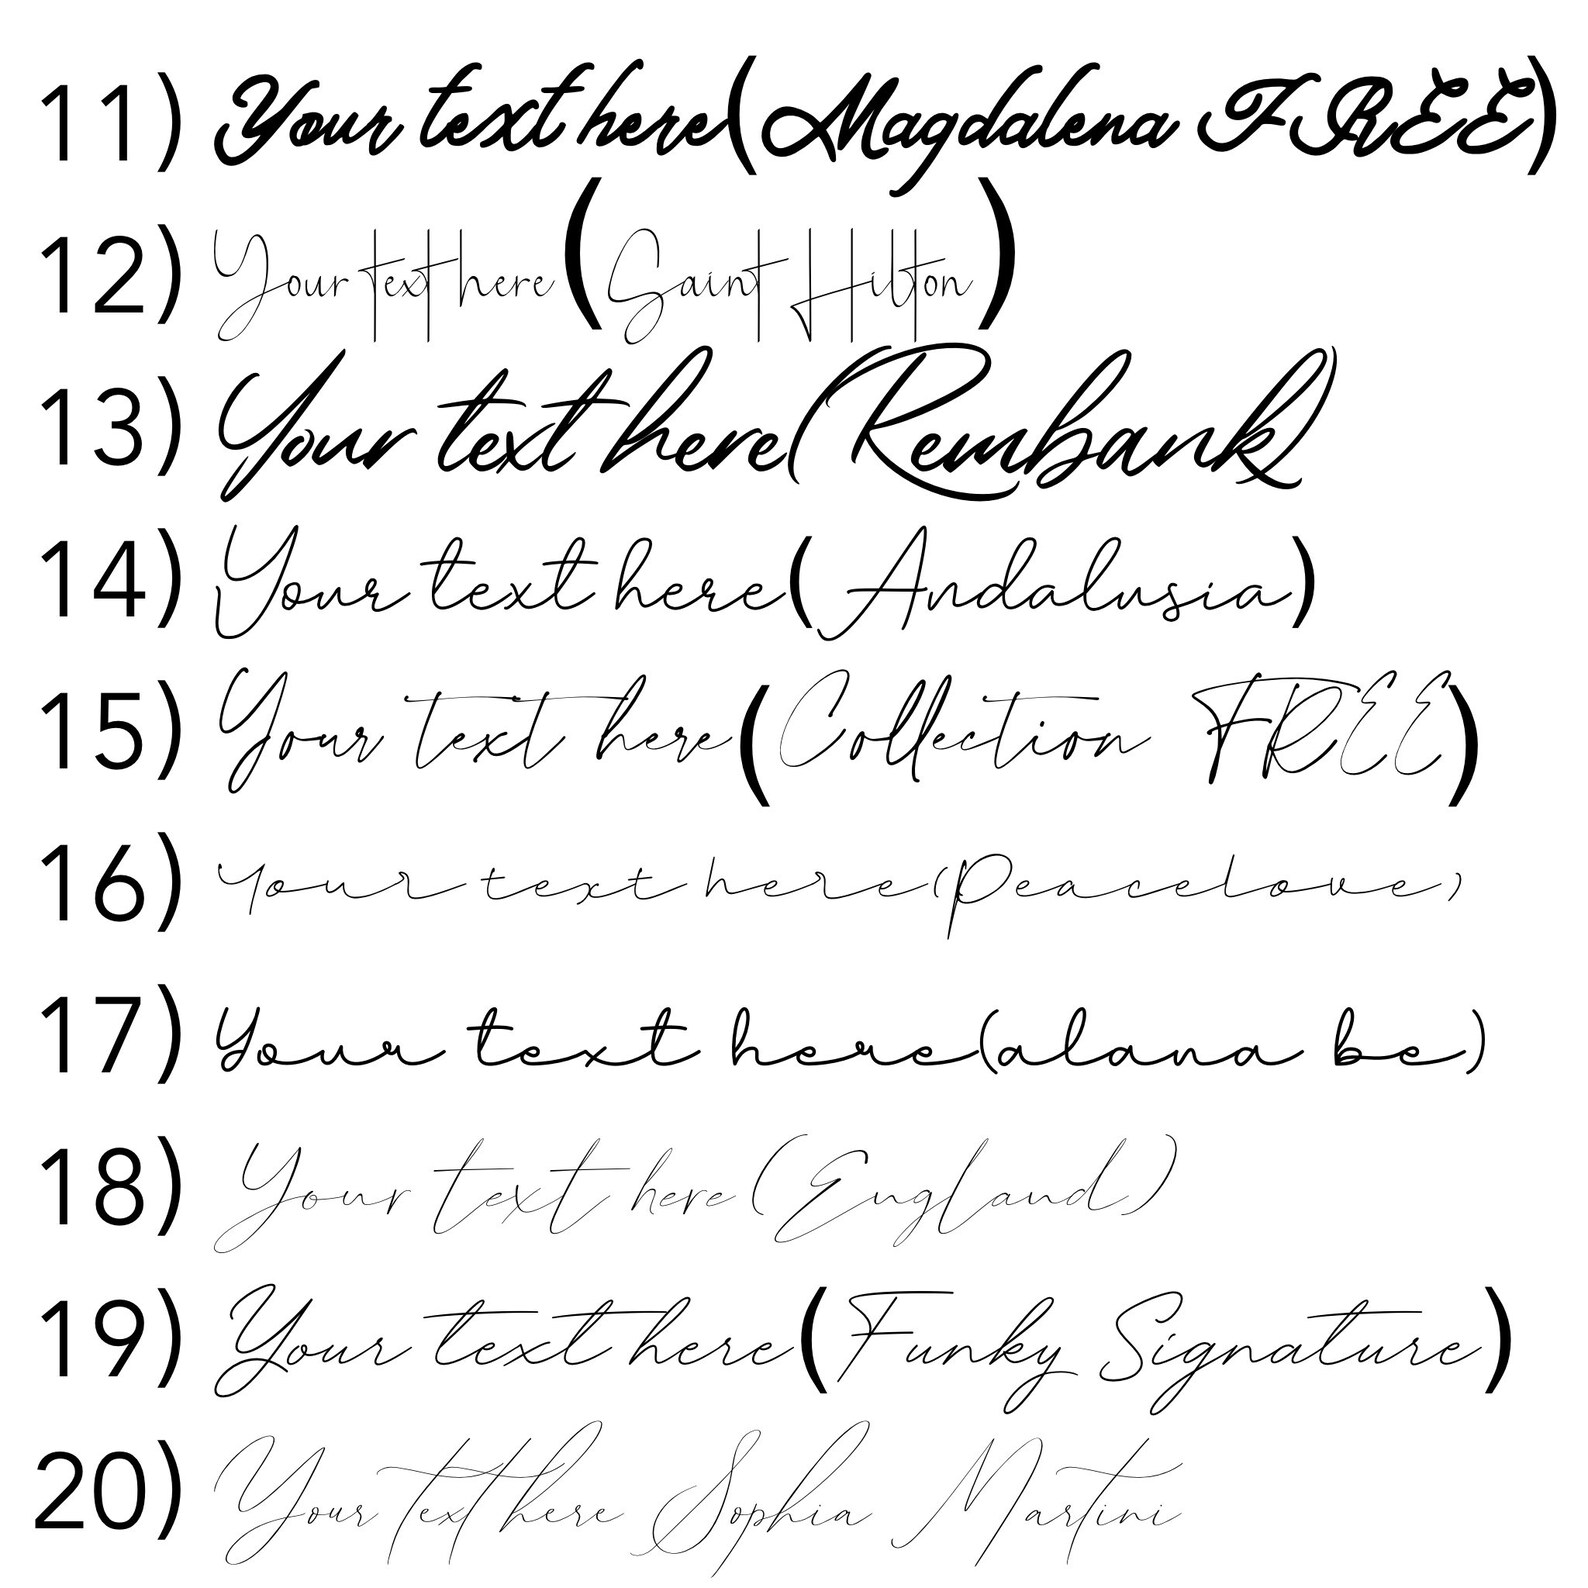 11) Your text here(Magdalena FREE)
12) Your text here(Saint Hilton)
13) Your text here(Rembank)
14) Your text here(Andalusia)
15) Your text here(Collection FREE)
16) Your text here(Peacelove)
17) Your text here(alana be)
18) Your text here(England)
19) Your text here(Funky Signature)
20) Your text here Sophia Martini